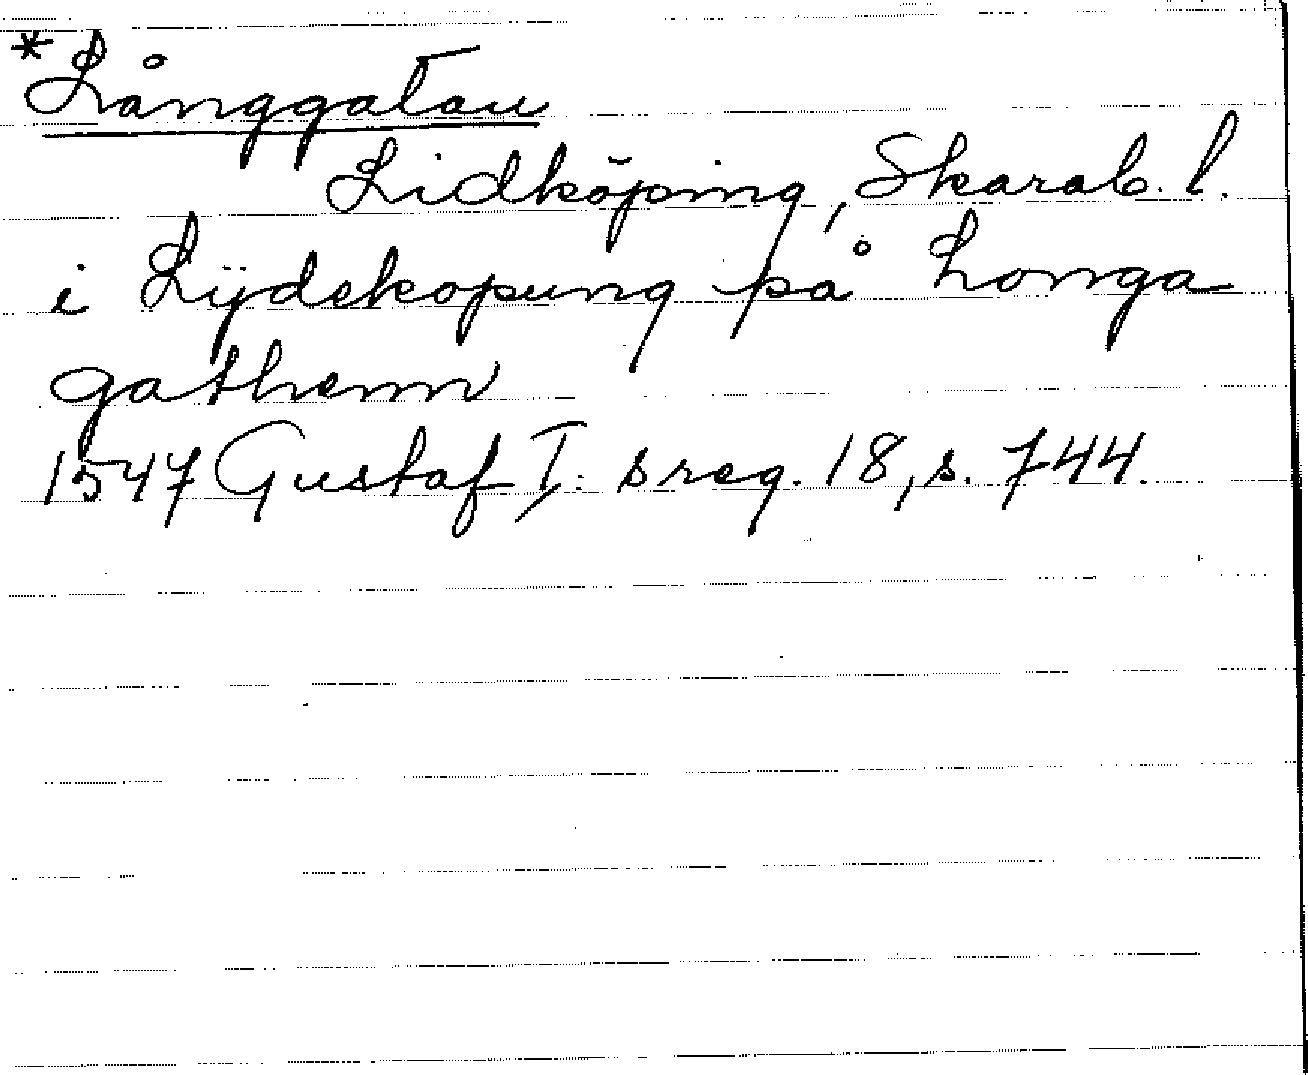 *Långgatan
Lidköping, Skarab. l.
i Lÿdekopung på Longa
gathenn
1547 Gustaf I: s reg. 18, s. 744.